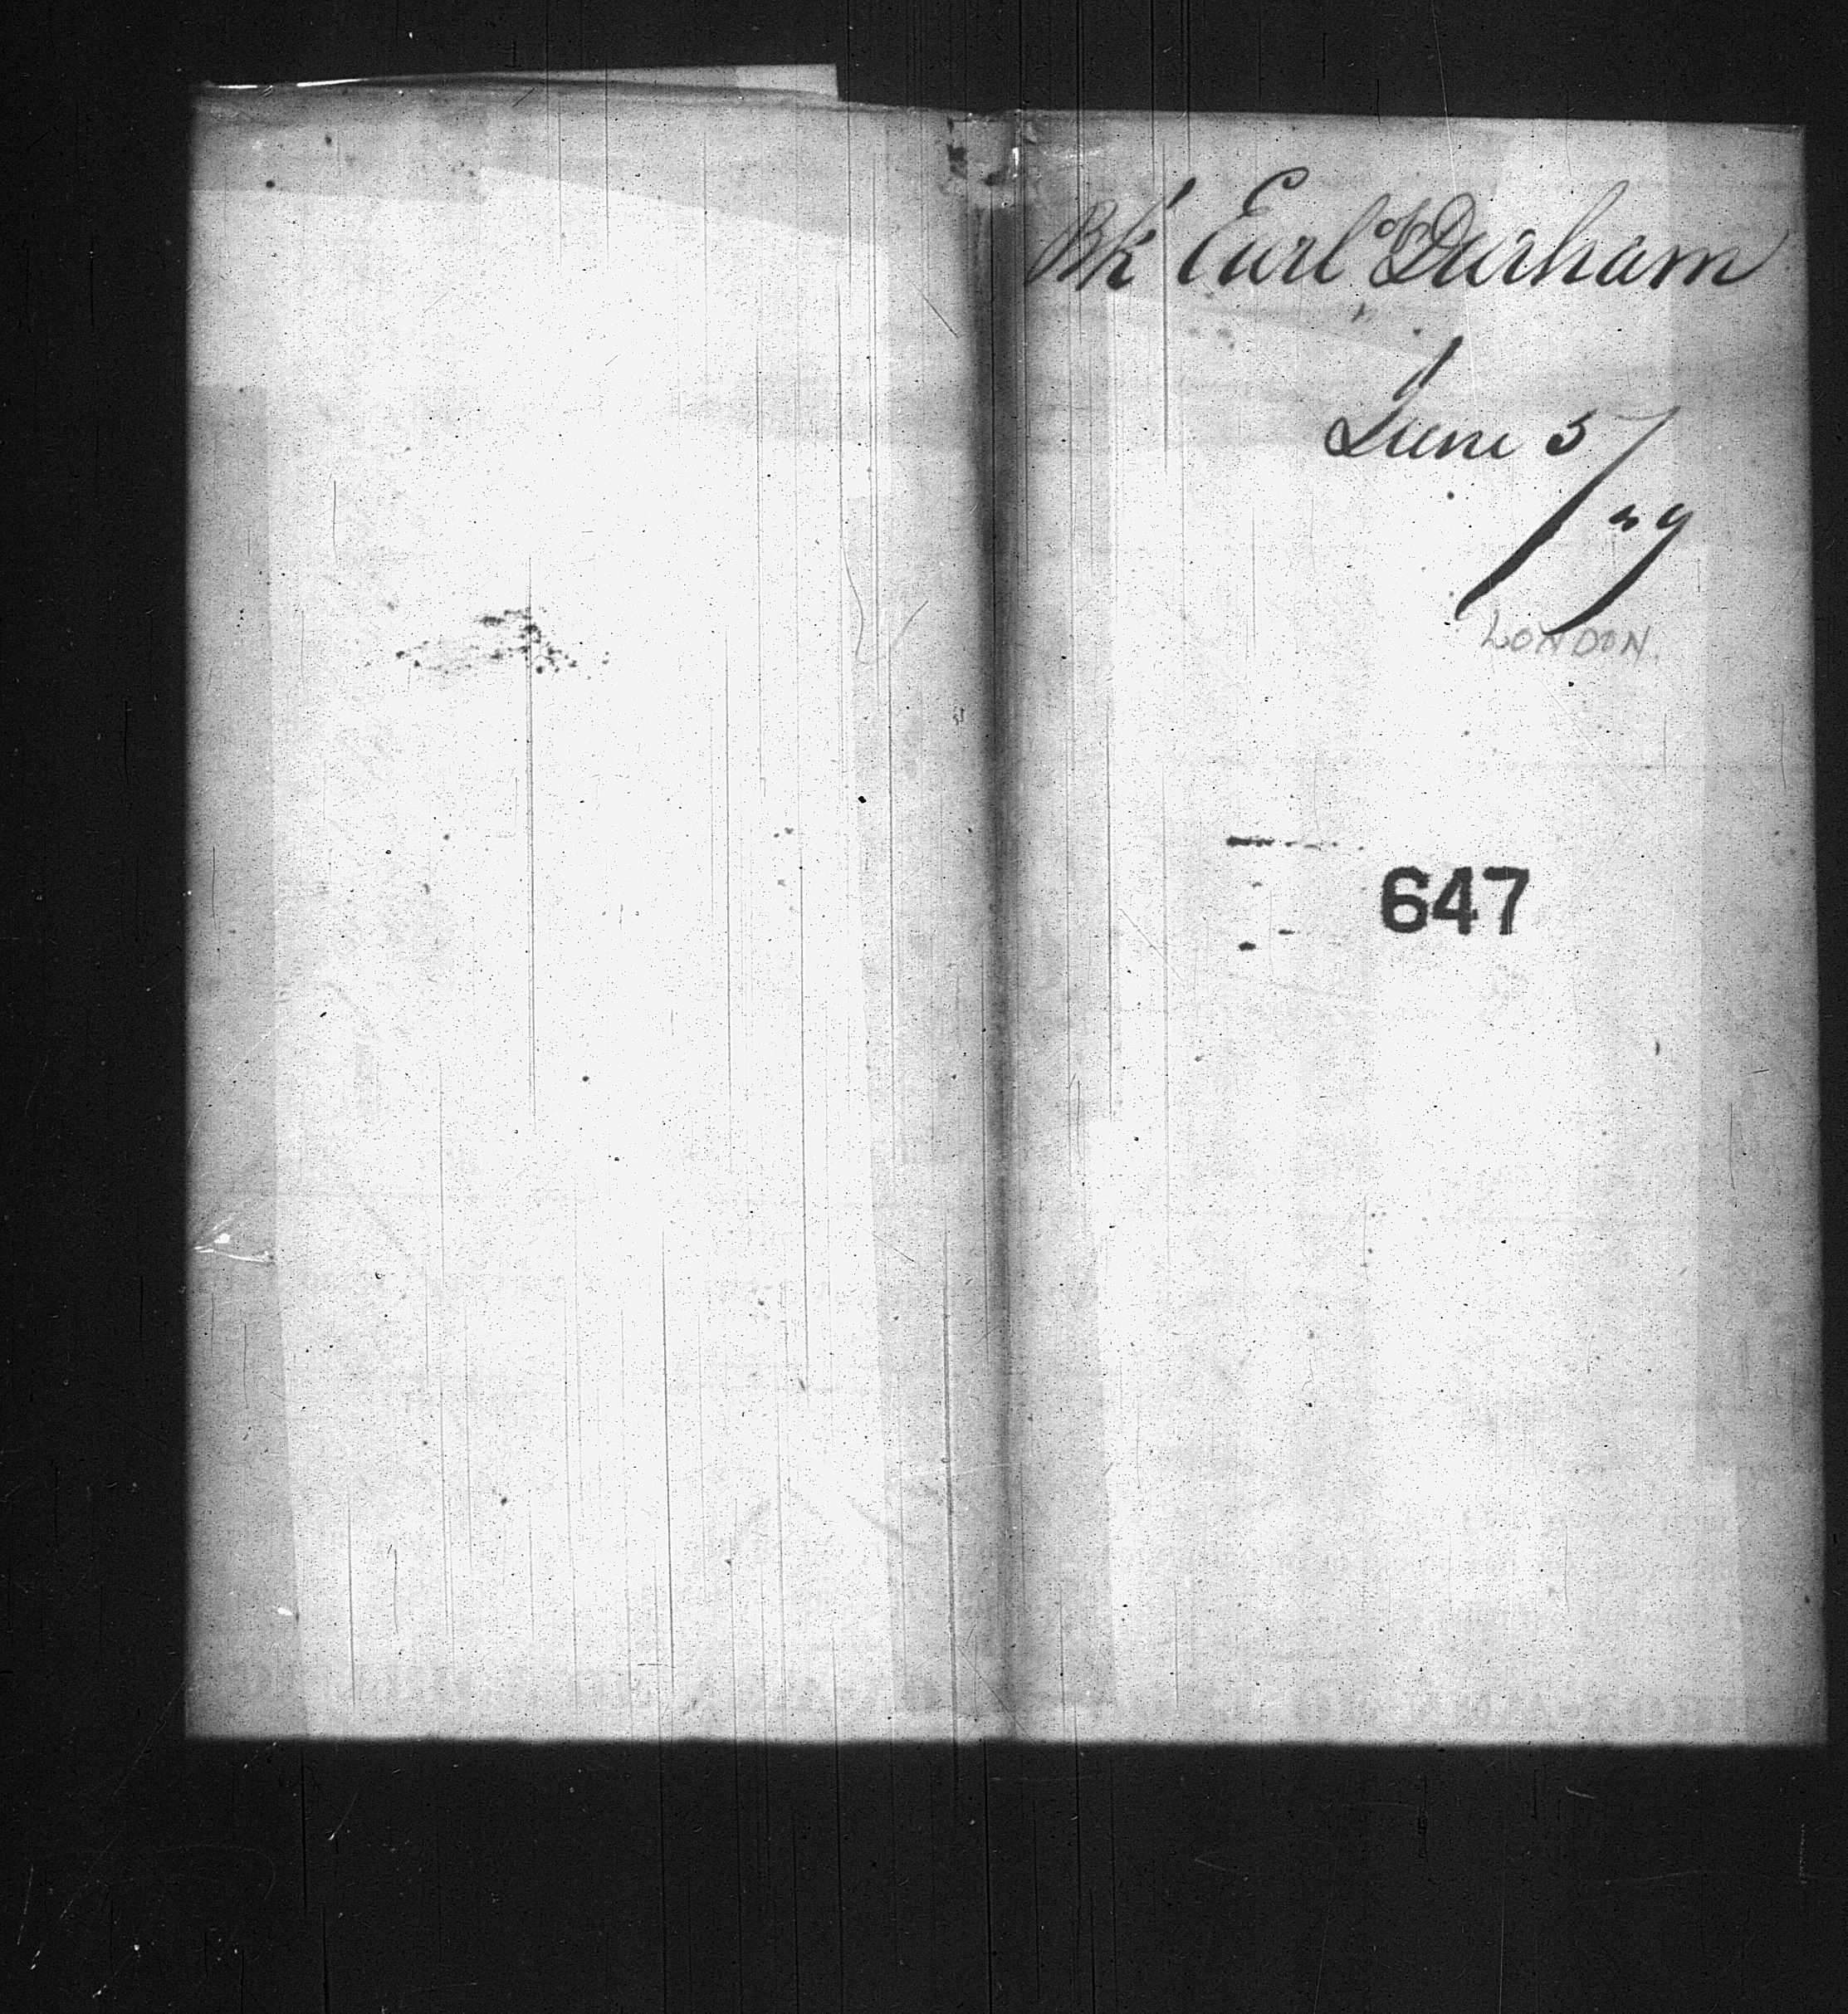 Bk Earl of Durham
June 5/39
LONDON.
647